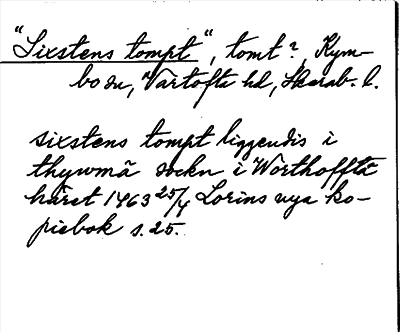 "Sixstens tompt", tomt?, Kym-
bo sn, Vartofta hd, Skarab. l.
sixstens tompt liggendis i
thywmā sockn i Wörthofftā
häret 1463 25/4 Lorins nya ko-
piebok s. 25.